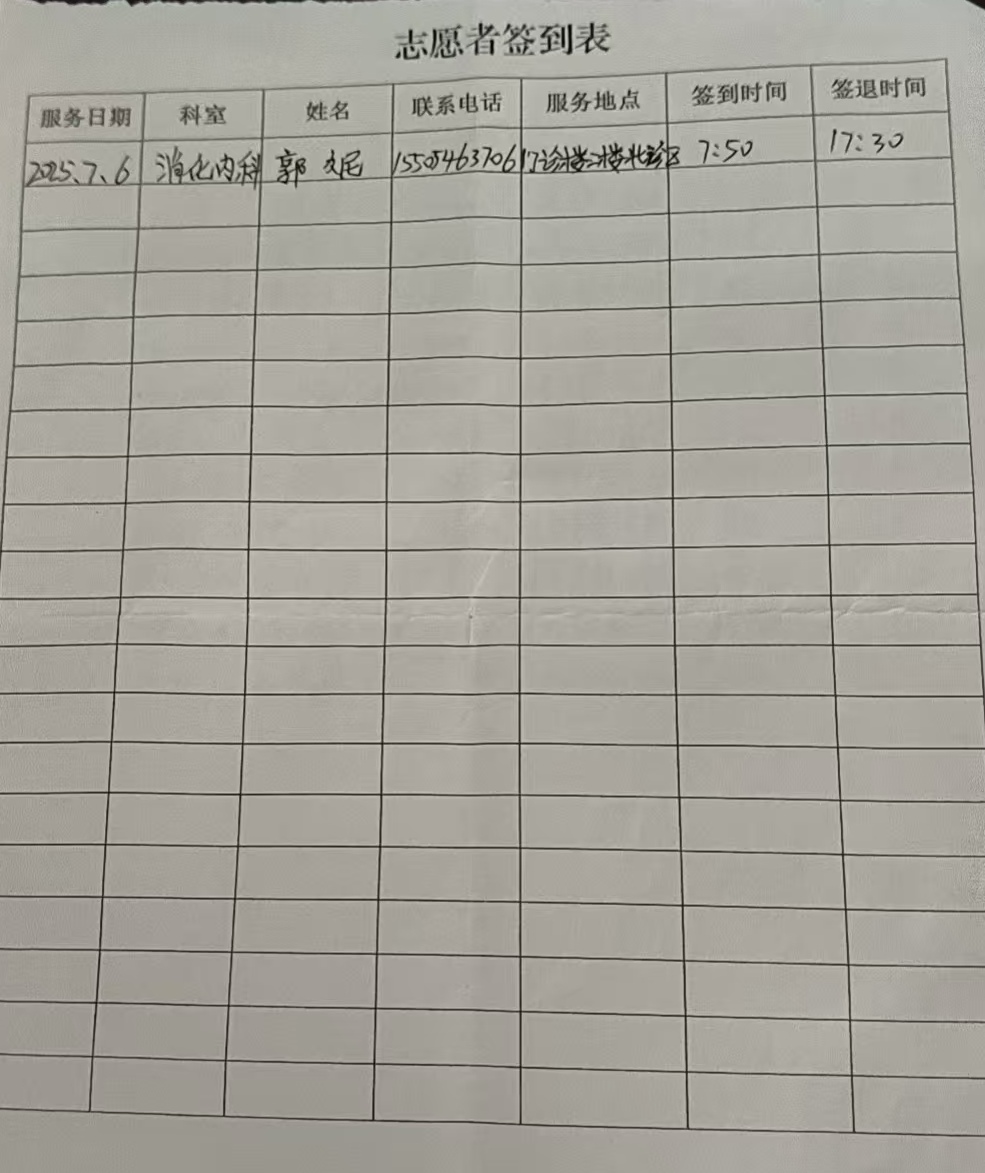 志愿者签到表
服务日期 科室 姓名 联系电话 服务地点 签到时间 签退时间
2025.7.6 消化内科 郭文尼 15505463706 门诊楼2楼北诊区 7:50 17:30